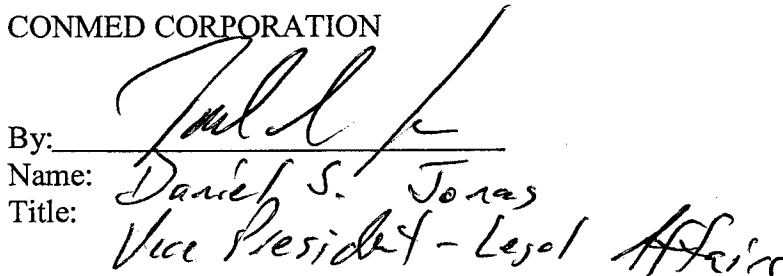 CONMED CORPORATION
By:
Name: Daniel S. Jonas
Title: Vice President - Legal Affairs